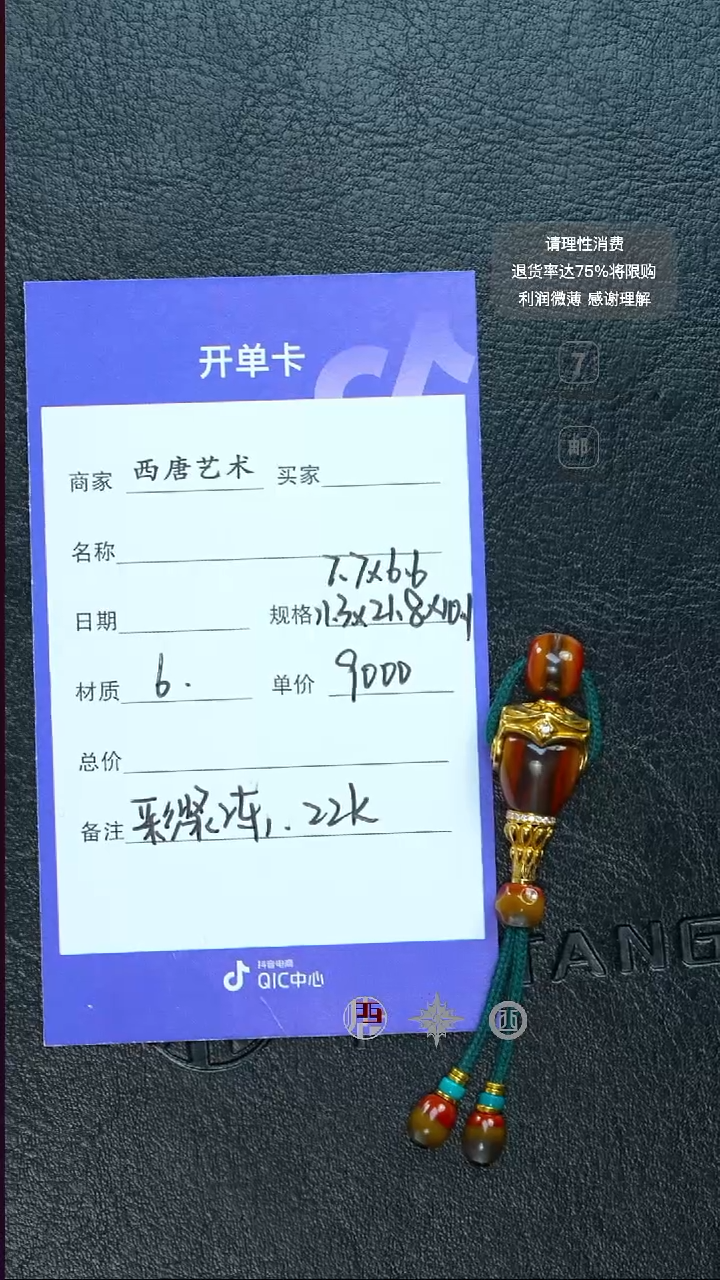 请理性消费
退货率达75%将限购
利润微薄 感谢理解
7
邮
开单卡
商家 西唐艺术 买家
名称
7.7x6.6
日期 规格 11.3x21.8x10.1
材质 6. 单价 9000
总价
备注 彩聚冻, . 22k
TANG
抖音电商
QIC中心
西